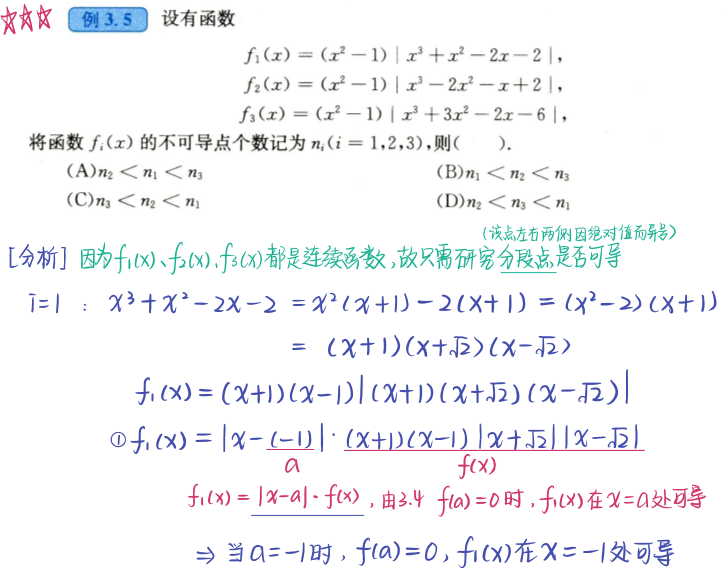 例3.5 设有函数
f₁(x) = (x² − 1) | x³ + x² − 2x − 2 |,
f₂(x) = (x² − 1) | x³ − 2x² − x + 2 |,
f₃(x) = (x² − 1) | x³ + 3x² − 2x − 6 |,
将函数 fᵢ(x) 的不可导点个数记为 nᵢ(i = 1,2,3),则( ).
(A)n₂ < n₁ < n₃ (B)n₁ < n₂ < n₃
(C)n₃ < n₂ < n₁ (D)n₂ < n₃ < n₁
(该点左右两侧因绝对值而异号)
[分析] 因为f₁(x)、f₂(x)、f₃(x)都是连续函数,故只需研究分段点是否可导
i=1 : x³+x²−2x−2 = x²(x+1)−2(x+1) = (x²−2)(x+1)
= (x+1)(x+√2)(x−√2)
f₁(x) = (x+1)(x−1)|(x+1)(x+√2)(x−√2)|
① f₁(x) = |x−(−1)|·(x+1)(x−1)|x+√2||x−√2|
a f(x)
f₁(x) = |x−a|·f(x), 由3.4 f(a)=0时, f₁(x)在x=a处可导
⇒ 当a=−1时, f(a)=0, f₁(x)在x=−1处可导